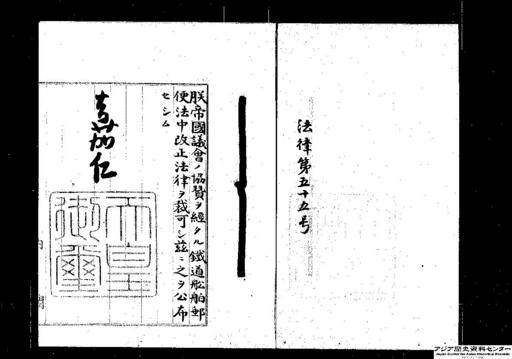 法律第五十五号
朕帝國議會ノ協賛ヲ經タル鐵道船舶郵
便法中改正法律ヲ裁可シ茲ニ之ヲ公布
セシム
嘉仁
天皇
御璽
アジア歴史資料センター
Japan Center for Asian Historical Records